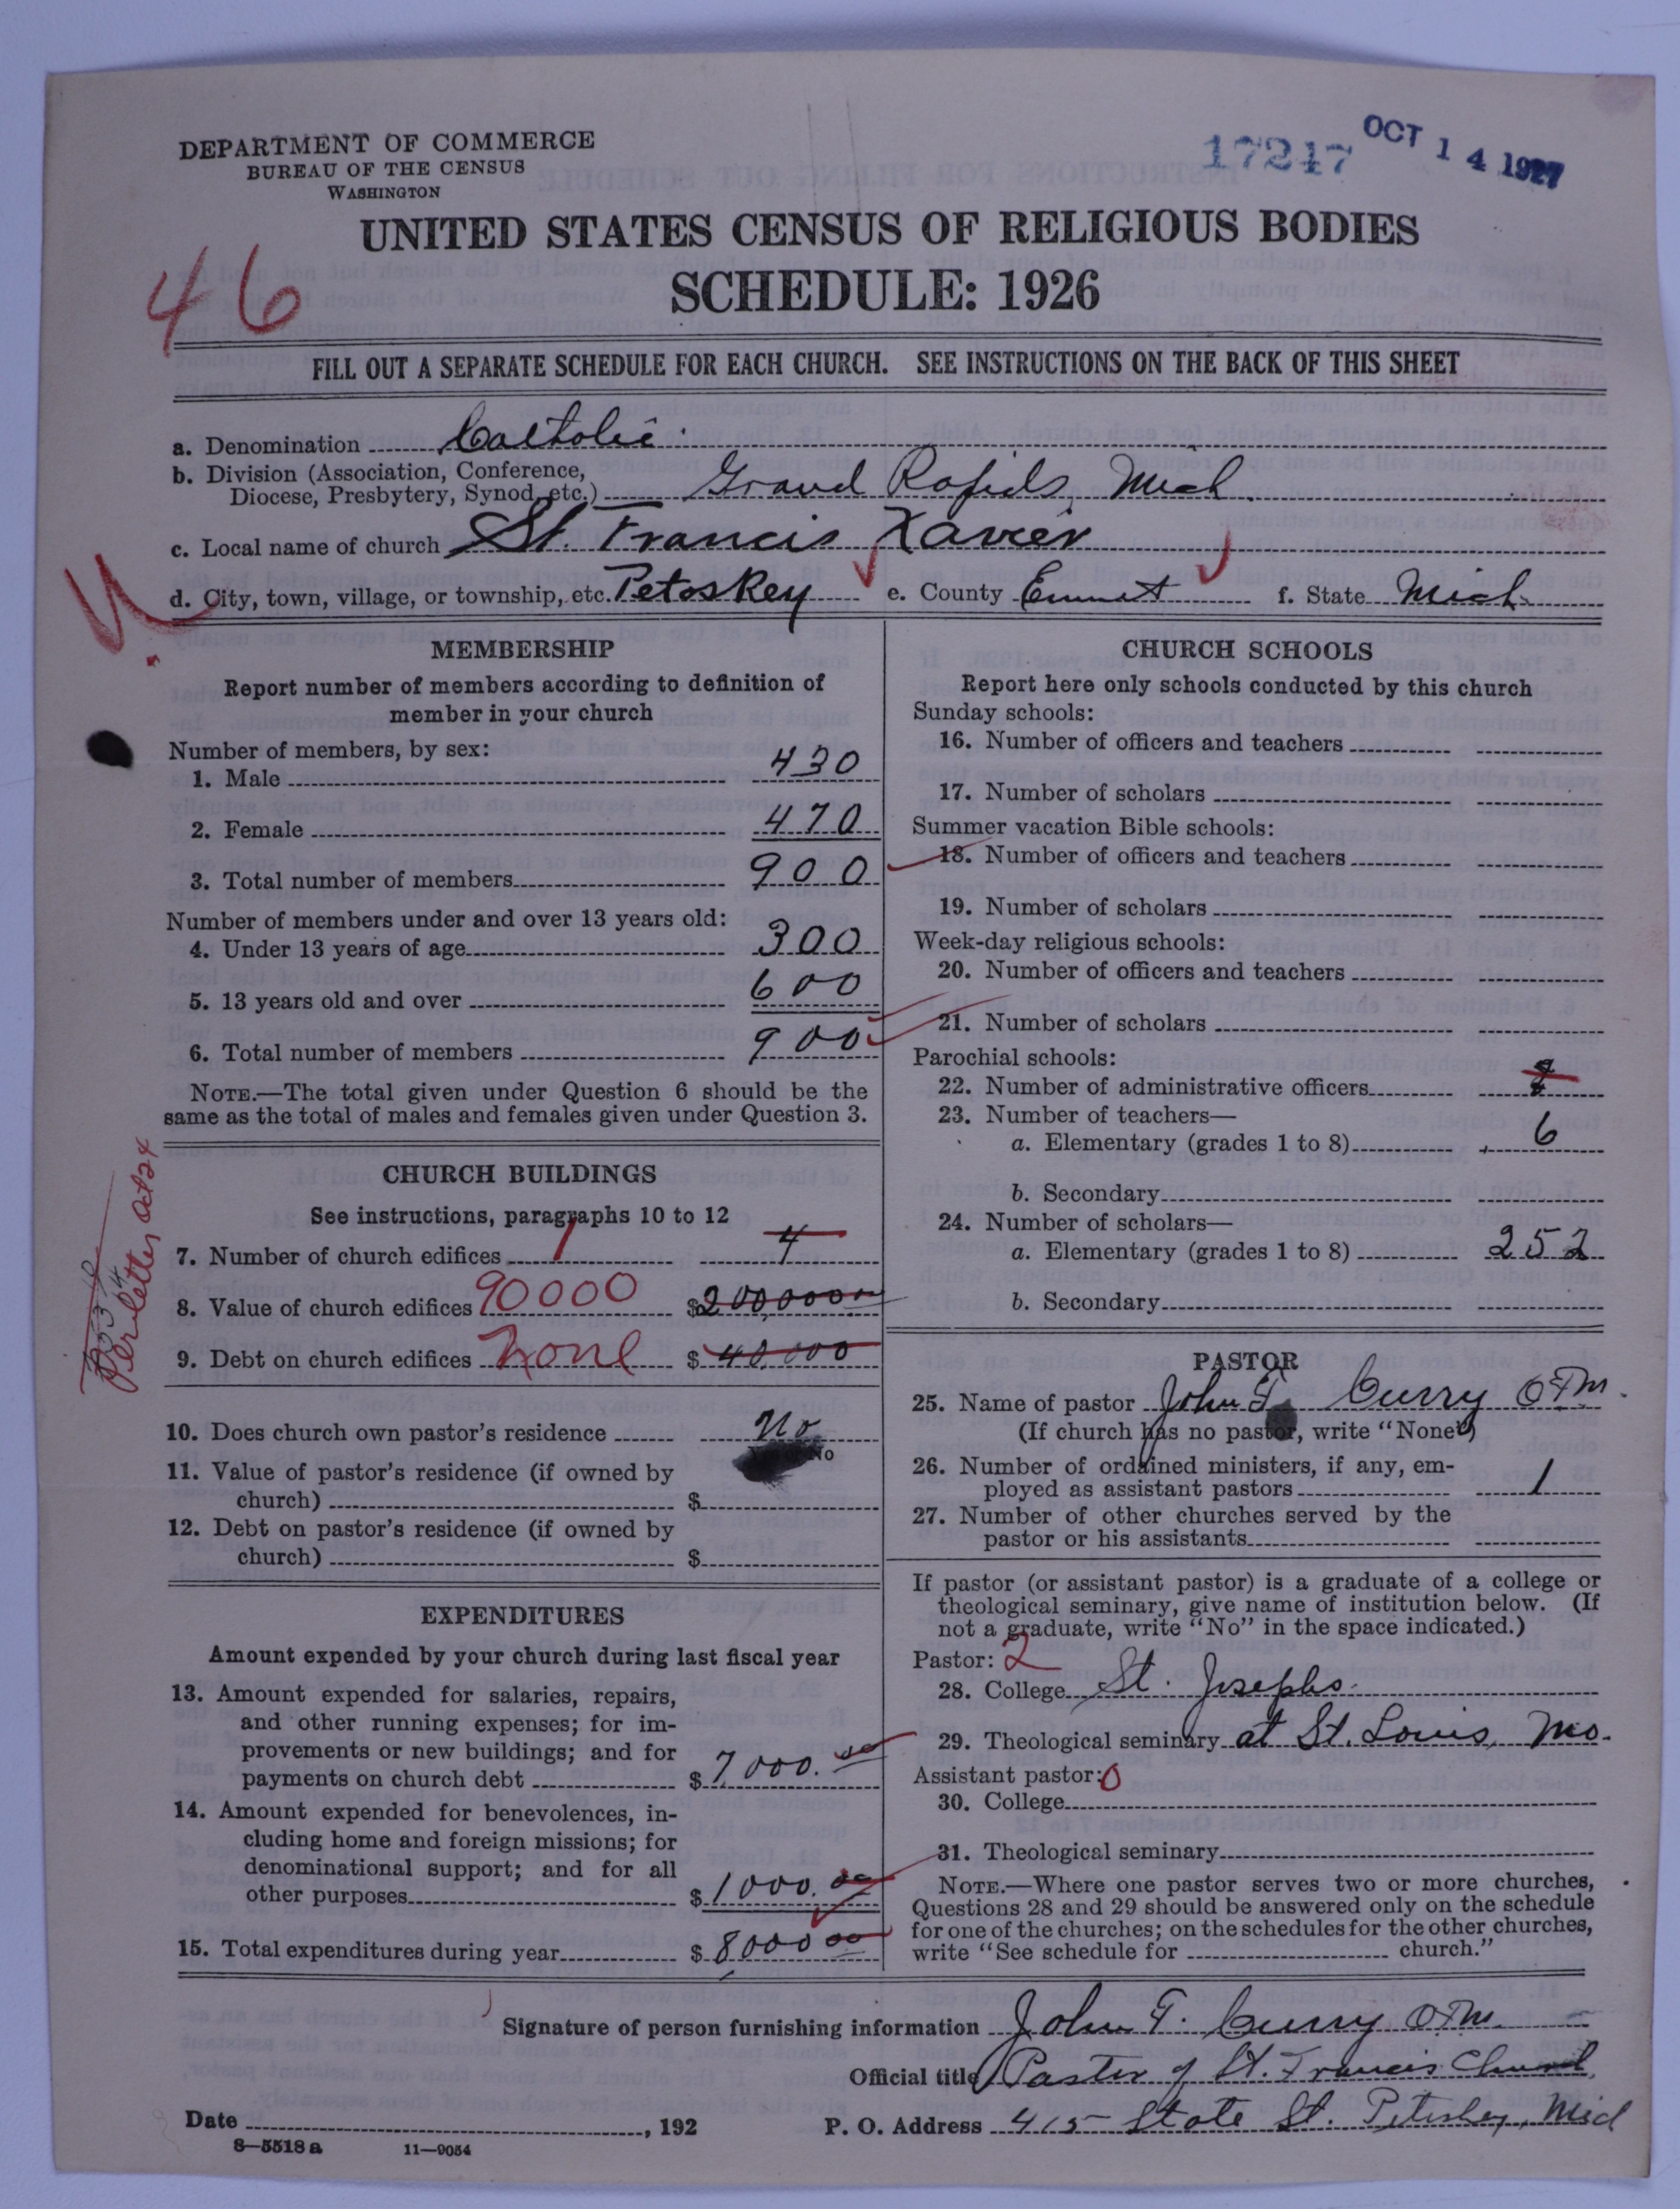 DEPARTMENT OF COMMERCE
BUREAU OF THE CENSUS
WASHINGTON
17247 OCT 14 1927
UNITED STATES CENSUS OF RELIGIOUS BODIES
SCHEDULE: 1926
46
FILL OUT A SEPARATE SCHEDULE FOR EACH CHURCH. SEE INSTRUCTIONS ON THE BACK OF THIS SHEET
a. Denomination Catholic.
b. Division (Association, Conference,
Diocese, Presbytery, Synod, etc.) Grand Rapids, Mich.
c. Local name of church St. Francis Xavier
d. City, town, village, or township, etc. Petoskey e. County Emmet f. State Mich.
MEMBERSHIP
Report number of members according to definition of
member in your church
Number of members, by sex:
1. Male 430
2. Female 470
3. Total number of members 900
Number of members under and over 13 years old:
4. Under 13 years of age 300
5. 13 years old and over 600
6. Total number of members 900
NOTE.—The total given under Question 6 should be the
same as the total of males and females given under Question 3.
CHURCH BUILDINGS
See instructions, paragraphs 10 to 12
7. Number of church edifices 1 4
8. Value of church edifices 90000 $200,000.00
9. Debt on church edifices none $ 40,000
Per letter Oct 24
10. Does church own pastor's residence No
No
11. Value of pastor's residence (if owned by
church) $
12. Debt on pastor's residence (if owned by
church) $
EXPENDITURES
Amount expended by your church during last fiscal year
13. Amount expended for salaries, repairs,
and other running expenses; for im-
provements or new buildings; and for
payments on church debt $ 7,000.00
14. Amount expended for benevolences, in-
cluding home and foreign missions; for
denominational support; and for all
other purposes $ 1000.00
15. Total expenditures during year $ 8,000 00
CHURCH SCHOOLS
Report here only schools conducted by this church
Sunday schools:
16. Number of officers and teachers
17. Number of scholars
Summer vacation Bible schools:
18. Number of officers and teachers
19. Number of scholars
Week-day religious schools:
20. Number of officers and teachers
21. Number of scholars
Parochial schools:
22. Number of administrative officers
23. Number of teachers—
a. Elementary (grades 1 to 8) 6
b. Secondary
24. Number of scholars—
a. Elementary (grades 1 to 8) 252
b. Secondary
PASTOR
25. Name of pastor John F. Curry OFM.
(If church has no pastor, write "None")
26. Number of ordained ministers, if any, em-
ployed as assistant pastors 1
27. Number of other churches served by the
pastor or his assistants
If pastor (or assistant pastor) is a graduate of a college or
theological seminary, give name of institution below. (If
not a graduate, write "No" in the space indicated.)
Pastor: 2
28. College St. Josephs.
29. Theological seminary at St. Louis, Mo.
Assistant pastor: 0
30. College
31. Theological seminary
NOTE.—Where one pastor serves two or more churches,
Questions 28 and 29 should be answered only on the schedule
for one of the churches; on the schedules for the other churches,
write "See schedule for church."
Signature of person furnishing information John F. Curry OFM.
Official title Pastor of St. Francis Church
Date , 192 P. O. Address 415 State St. Petoskey, Mich
8—5518 a 11—9054